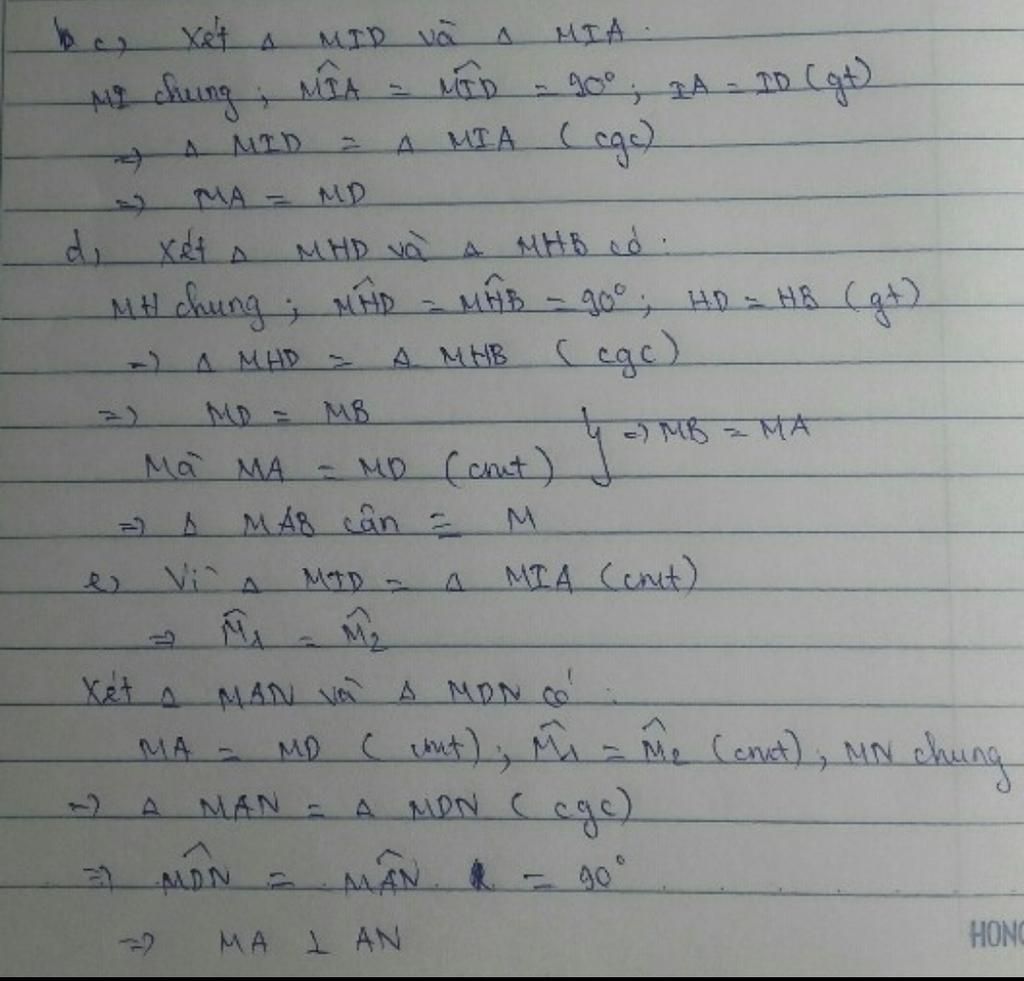 c, Xét Δ MID và Δ MIA.
MI chung ; M̂IA = M̂ID = 90° ; IA = ID (gt)
=> Δ MID = Δ MIA (cgc)
=> MA = MD
d, Xét Δ MHD và Δ MHB có :
MH chung ; M̂HD = M̂HB = 90° ; HD = HB (gt)
=> Δ MHD = Δ MHB (cgc)
=> MD = MB
} => MB = MA
Mà MA = MD (cmt)
=> Δ MAB cân = M
e, Vì Δ MID = Δ MIA (cmt)
=> M̂1 = M̂2
Xét Δ MAN và Δ MDN có :
MA = MD (cmt) ; M̂1 = M̂2 (cmt) ; MN chung
=> Δ MAN = Δ MDN (cgc)
=> M̂DN = M̂AN = 90°
=> MA ⊥ AN
HONG